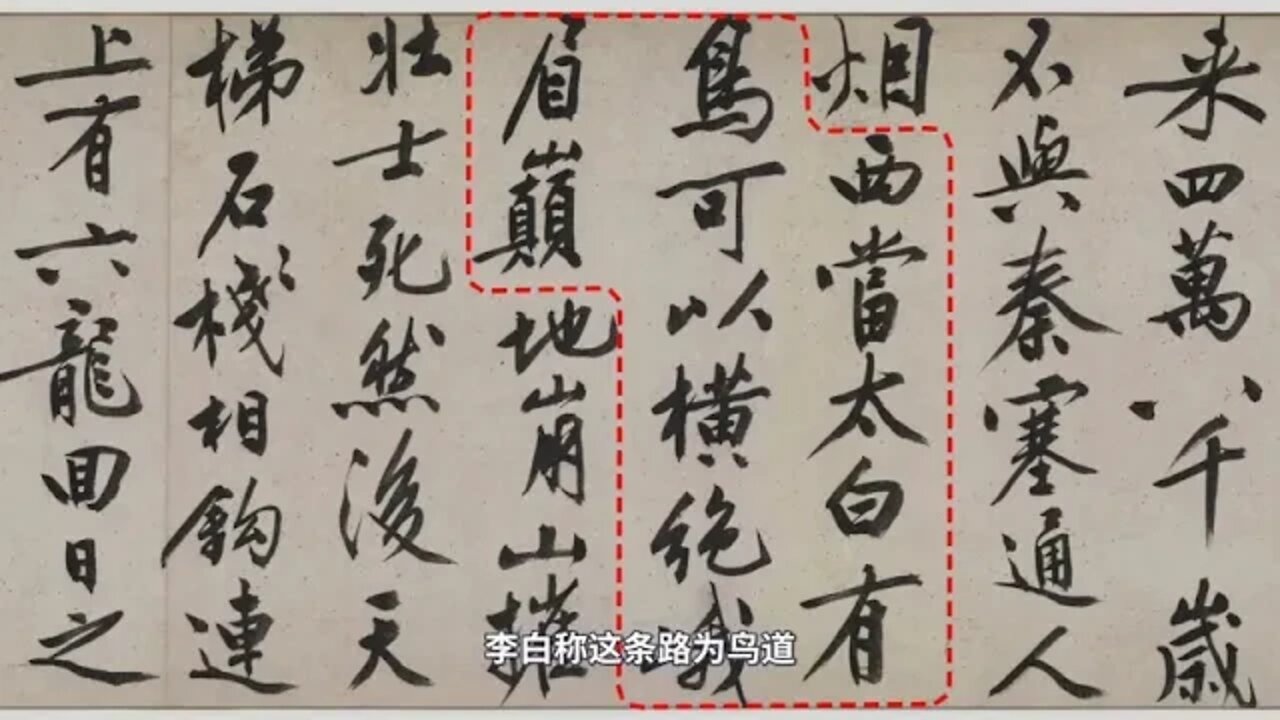 来四萬八千歲
不與秦塞通人
烟西當太白有
鳥可以橫絶峨
眉巔地崩山摧
壯士死然後天
梯石棧相鈎連
上有六龍回日之
李白称这条路为鸟道